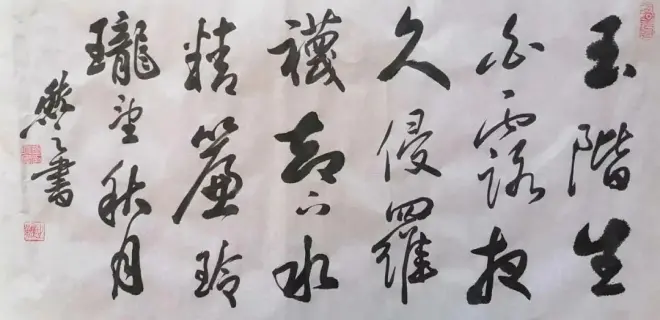 玉階生
白露夜
久侵羅
襪却下水
精簾玲
瓏望秋月
書